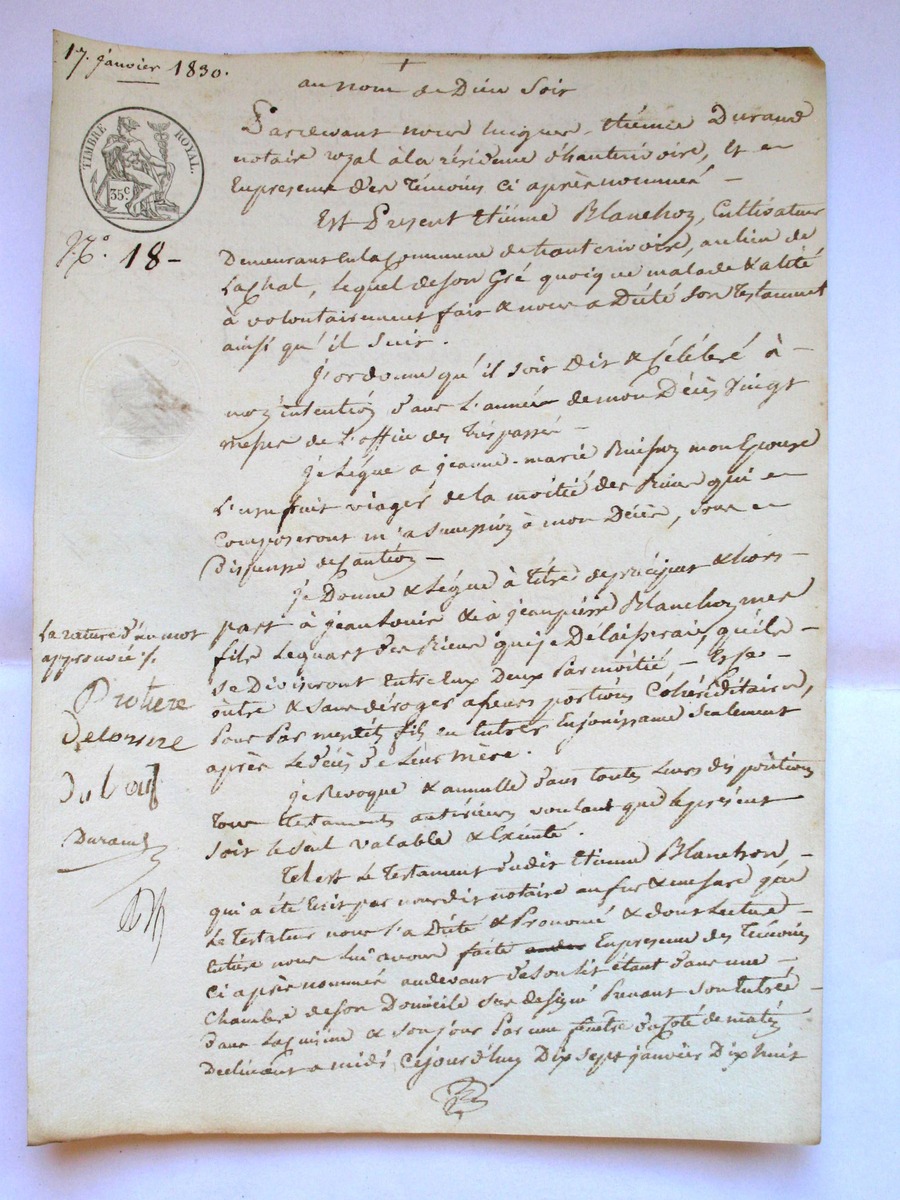 17. janvier 1830.
au nom de Dieu soit
TIMBRE ROYAL.
35c
Pardevant nous Etiénne Durand
notaire royal à la résidence d'hauterivoire, Et en
En presence des Témoins ci après nommés —
Est Présent Etiénne Blanchon, Cultivateur
N.o 18 —
Demeurant En la commune de hauterivoire, au lieu de
Laval, lequel de son Gré quoique malade & alité
à volontairement fait & nous a Dicté son Testament
ainsi qu'il suit.
J'ordonne qu'il soit dit & Célébré à —
mon intention dans L'année de mon Décès Vingt
messes de L'office des Trépassés —
je Lègue a jeanne-marie mon Epouse
L'usufruit viager de la moitié des Biens qui en —
Composeront ma succession à mon Décès, sous —
Dispense de Caution —
je Donne & Lègue à Titre de préciput & hors —
part à jean Louis & à jean pierre Blanchon mes
fils Le quart des Biens que je Délaisserai, qu'ils —
se Diviseront Entre Eux Deux Par moitié — Et Ce —
outre & sans déroger a leurs portions Cohéréditaires,
Pour Par mesdits fils en Entrer En jouissance seulement
après Le décès de Leur mère.
La rature d'un mot
approuvée /.
Protiere
Delorme
Durand
je Revoque & annulle dans toutes Leurs dispositions
Tous testaments antérieurs voulant que le présent
soit le seul valable & Exécuté.
Tel est Le Testament dudit Etiénne Blanchon, —
qui a été Ecrit par nous dit notaire au fur & mesure que
Le Testateur nous L'a Dicté & Prononcé & dont Lecture —
Entière nous Lui avons faite En presence des Témoins
Ci après nommés au devant de son lit étant dans une —
Chambre de son Domicile sus designé Prenant son Entrée
dans La cuisine & son jour Par une fenêtre du côté de matin
Declinant a midi, Cejourd'huy Dix sept janvier Dix huit